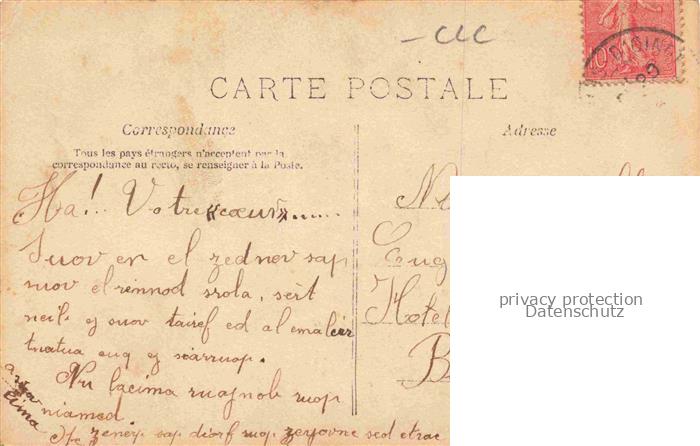 CLC
CARTE POSTALE
Correspondance
Tous les pays étrangers n'acceptent pas la
correspondance au recto, se renseigner à la Poste.
Ha!.. Votre «cœur»......
Suov en el zednev sap
ruov el rennod srola, sèrt
neib ej suov tairef ed al emalcér
tnatua euq ej siarruop.
Nu lacima ruojnob ruop
niamed.
zenerp sap diorf ruop zeyovne sed etrac
Adresse
Eug
Hotel
B
10
privacy protection
Datenschutz